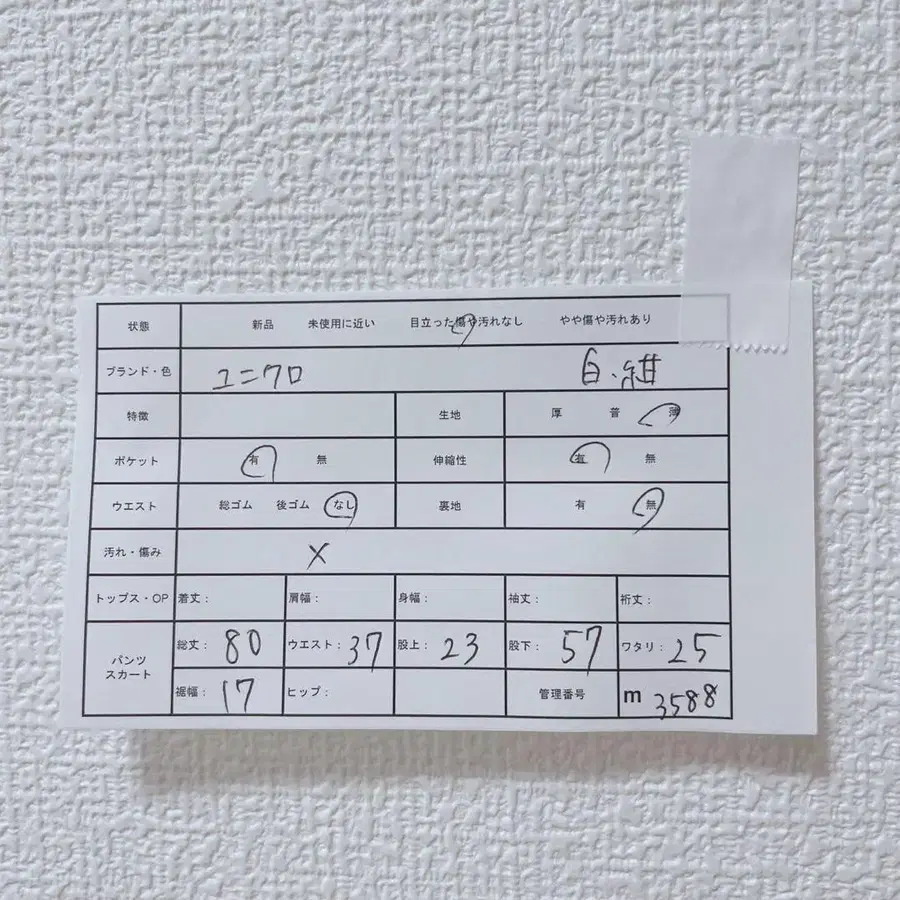 状態 新品 未使用に近い 目立った傷や汚れなし やや傷や汚れあり
ブランド・色 ユニクロ 白、紺
特徴 生地 厚 普 薄
ポケット 有 無 伸縮性 有 無
ウエスト 総ゴム 後ゴム なし 裏地 有 無
汚れ・傷み ×
トップス・OP 着丈: 肩幅: 身幅: 袖丈: 裄丈:
パンツ スカート 総丈: 80 ウエスト: 37 股上: 23 股下: 57 ワタリ: 25
裾幅: 17 ヒップ: 管理番号 m 3588